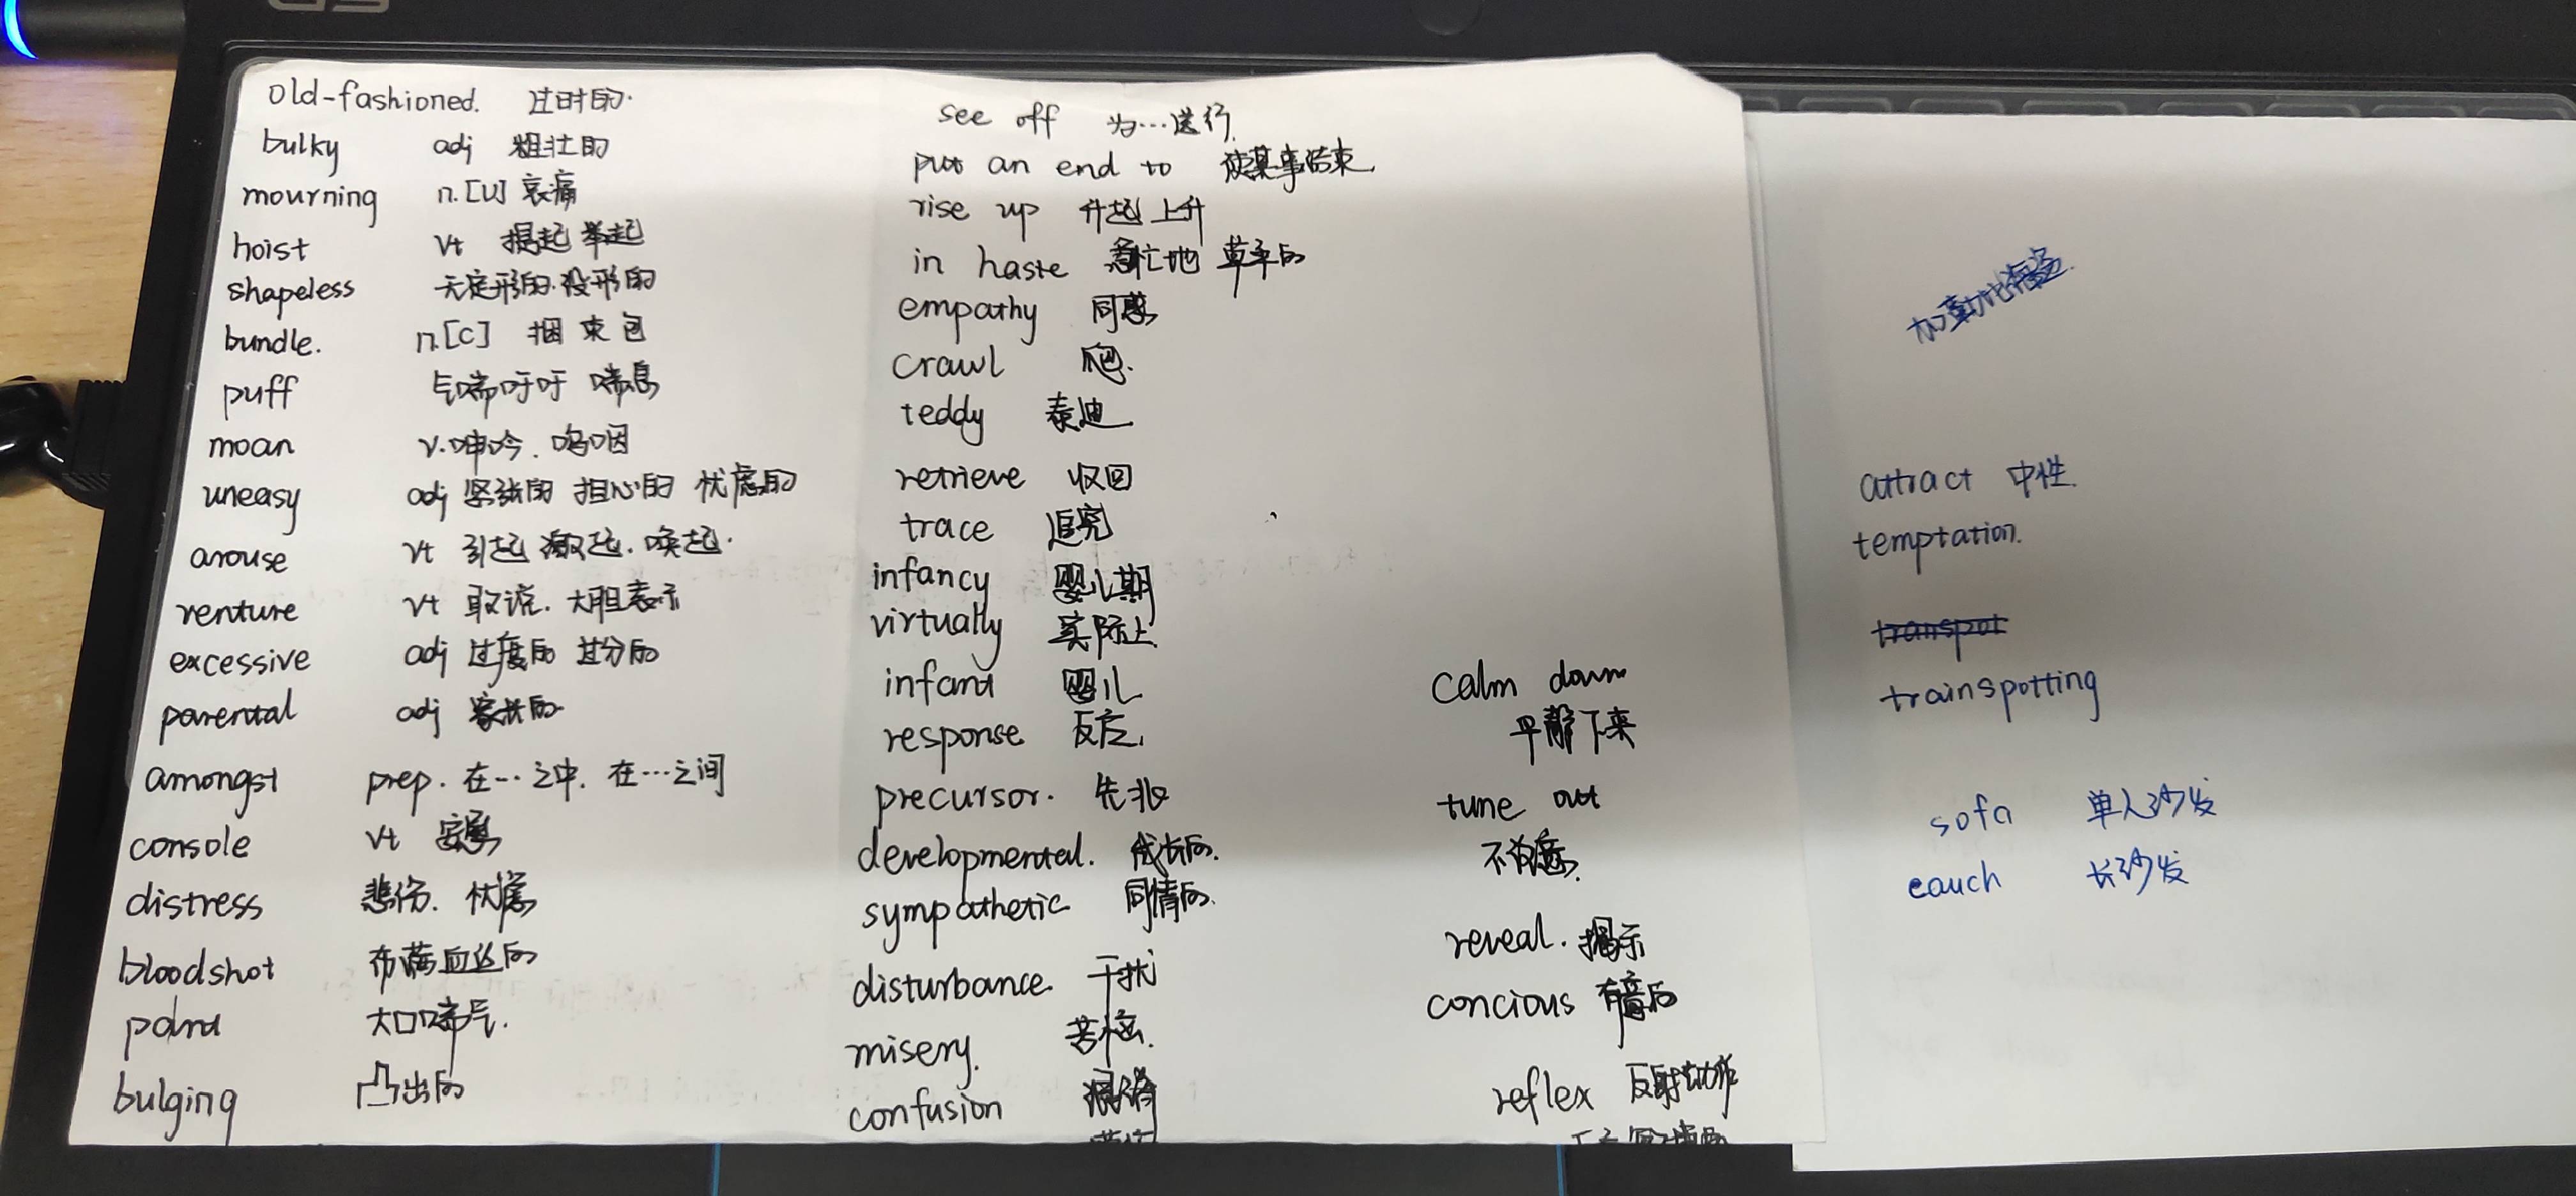 old-fashioned. 过时的.
bulky adj 粗壮的
mourning n.[U] 哀痛
hoist vt 提起 举起
shapeless 无定形的.没形的
bundle. n.[C] 捆 束 包
puff 气喘吁吁 喘息
moan v.呻吟.呜咽
uneasy adj 坚张的 担心的 忧虑的
arouse vt 引起 激起.唤起.
venture vt 敢说.大胆表示
excessive adj 过度的 过分的
parental adj 家长的
amongst prep. 在…之中. 在…之间
console vt 安慰
distress 悲伤. 忧虑
bloodshot 布满血丝的
大口喘气.
bulging 凸出的
see off 为…送行.
put an end to 使某事结束
rise up 升起 上升
in haste 急忙地 草率的
empathy 同感
crawl 爬.
teddy 泰迪
retrieve 收回
trace 追究
infancy 婴儿期
virtually 实际上
infant 婴儿
response 反应.
precursor. 先兆
developmental. 成长的.
sympathetic 同情的.
disturbance. 干扰
misery. 苦恼.
confusion 混淆
calm down
平静下来
tune out
不注意.
reveal. 揭示
concious 有意的
reflex 反射动作
attract 中性.
temptation.
transpot
trainspotting
sofa 单人沙发
cauch 长沙发